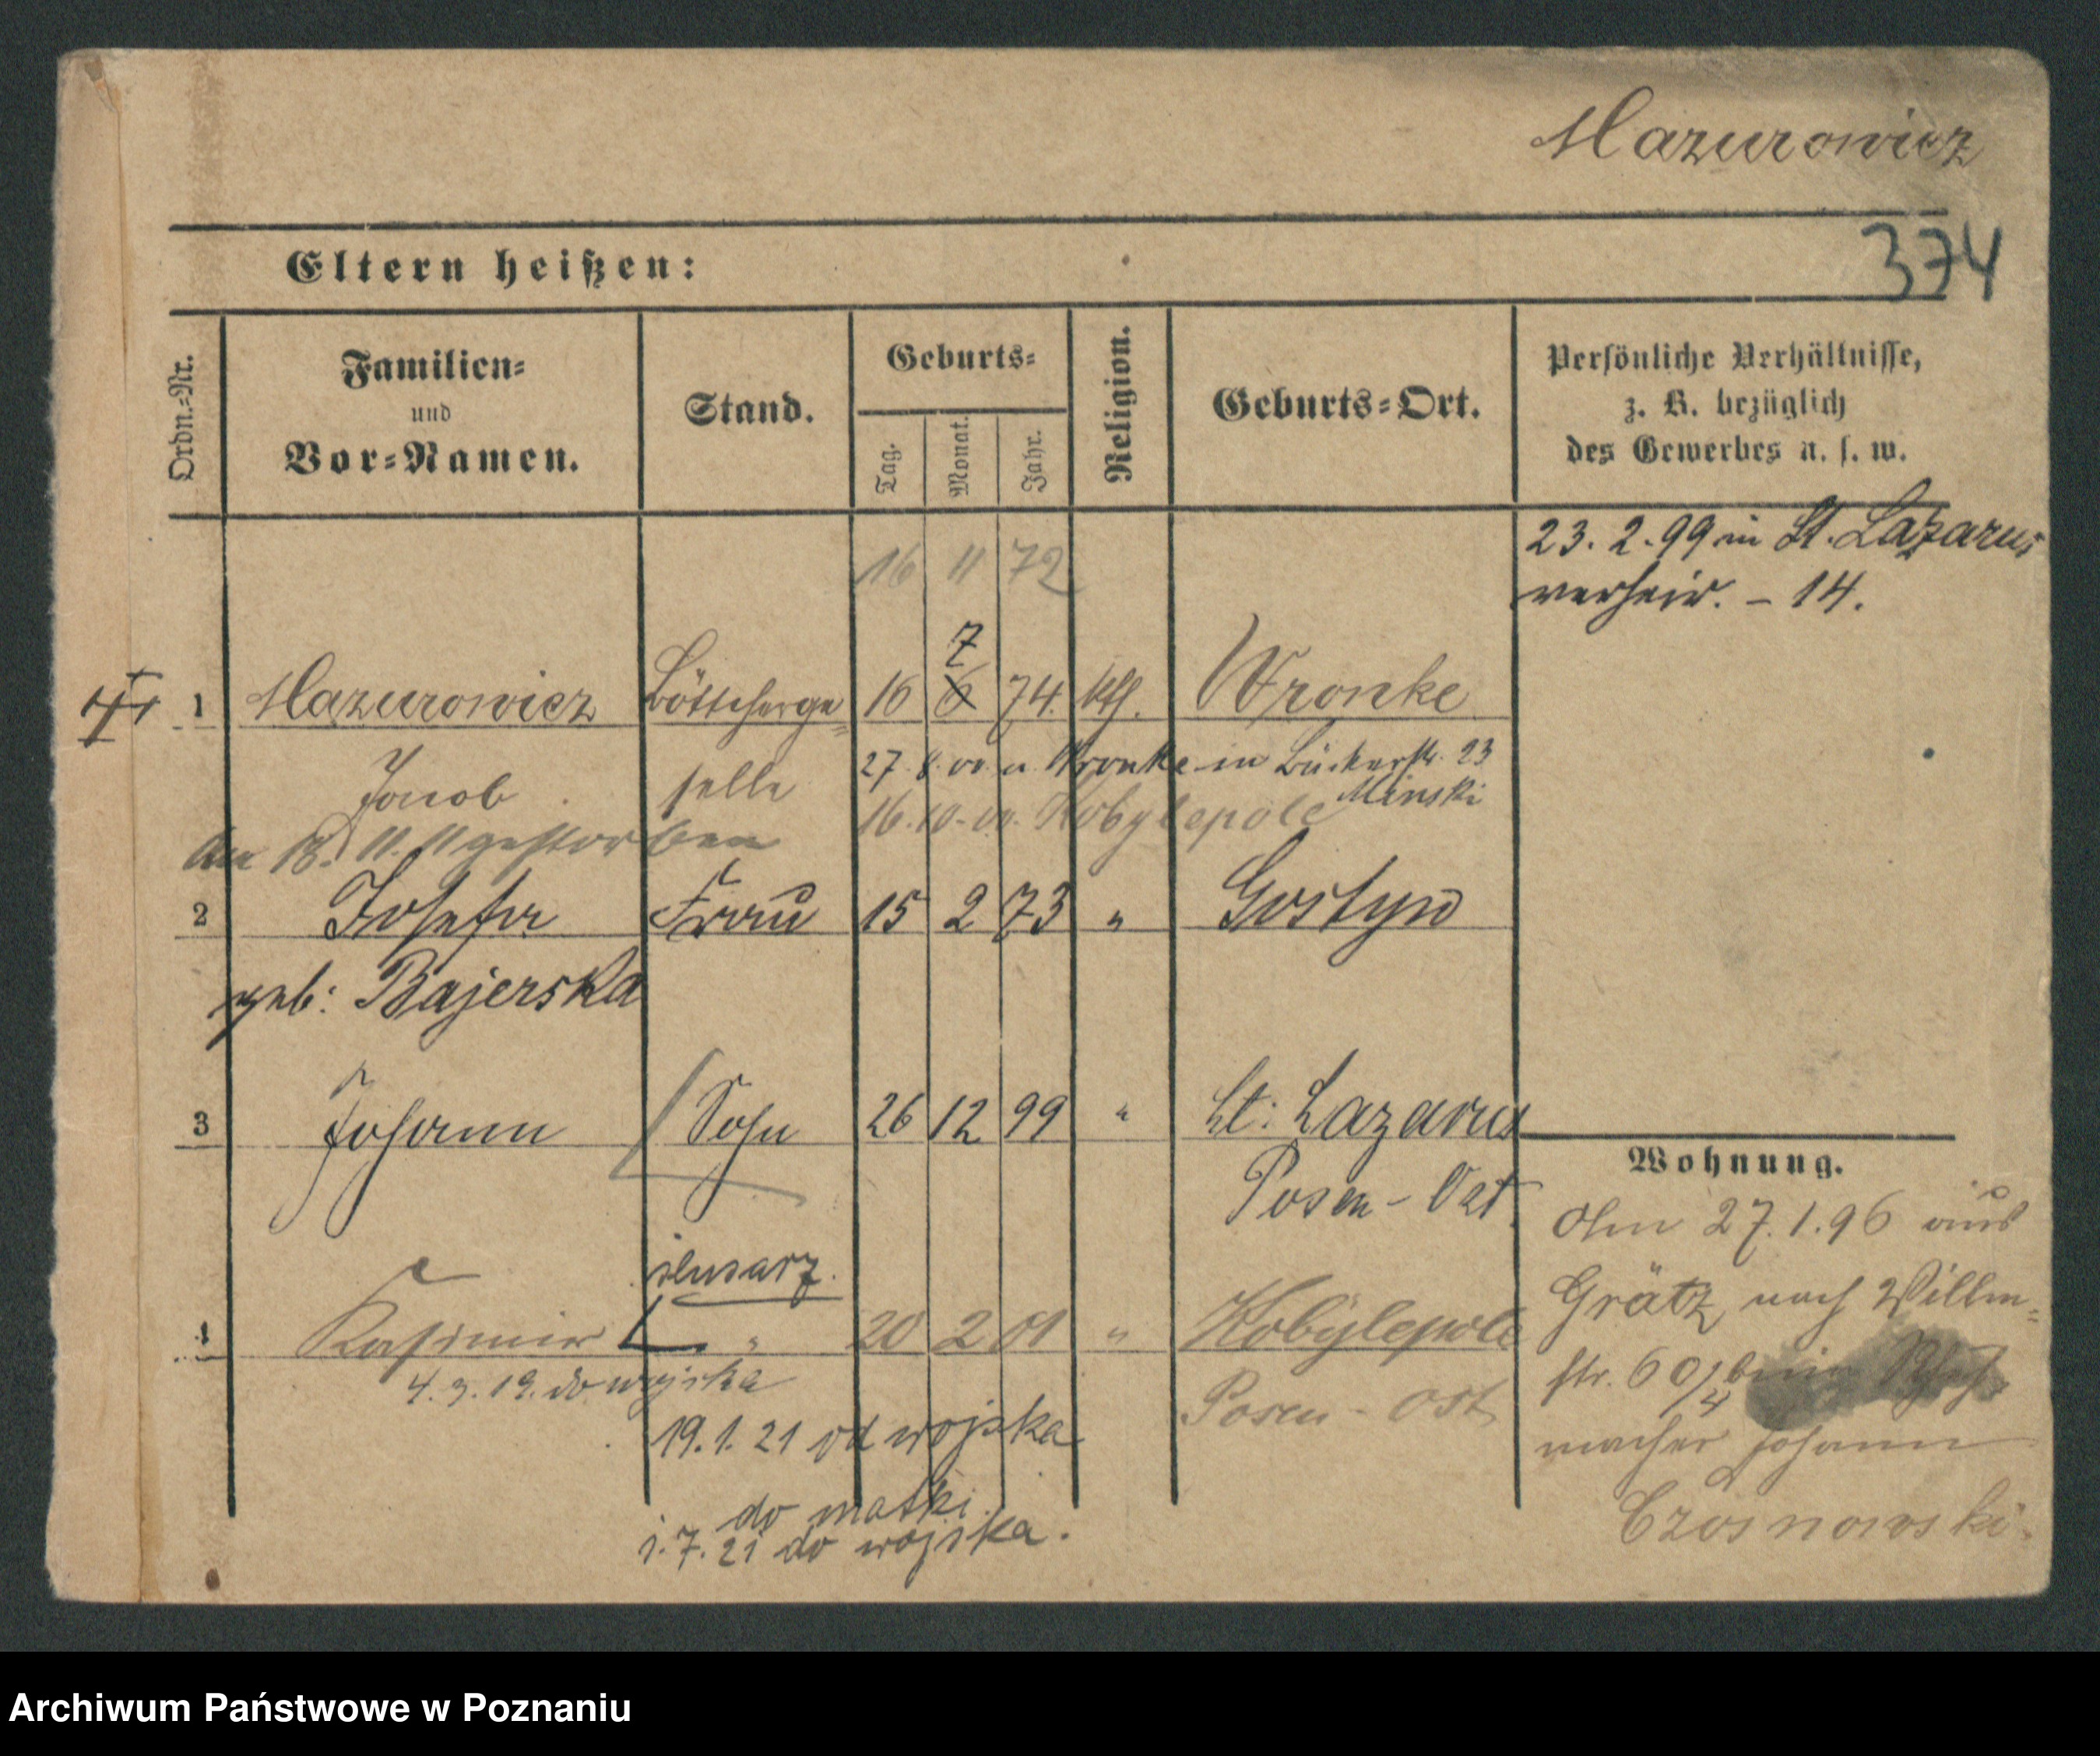 Mazurowicz
374
Eltern heißen:
Ordn.-Nr.
Familien-
und
Vor-Namen.
Stand.
Geburts-
Tag.
Monat.
Jahr.
Religion.
Geburts-Ort.
Persönliche Verhältnisse,
z. B. bezüglich
des Gewerbes u. s. w.
23. 2. 99 in St. Lazarus
verheir. - 14.
16 11 72
7
1 Mazurowicz Böttcherge= 16 6 74. kth. Wronke
Jacob selle
27. 8. 00. a. Wronke in Bückerstr. 23
Minski
16. 10. 00. Kobylepole
Am 18. 11. 11 gestorben
2 Josefa Frau 15 2 73 " Gostyn
geb: Bajerska
3 Johann Sohn 26 12 99 " St: Lazarus
Posen - Ost.
slusarz.
4 Kasimir " 20 2 01 " Kobylepole
4. 3. 19. do wojska
Posen - Ost
19. 1. 21 od wojska
do matki.
1. 7. 21 do wojska.
Wohnung.
Am 27. 1. 96 aus
Grätz nach Wilhm=
str. 60/4 beim Schuh=
macher Johann
Czosnowski.
Archiwum Państwowe w Poznaniu